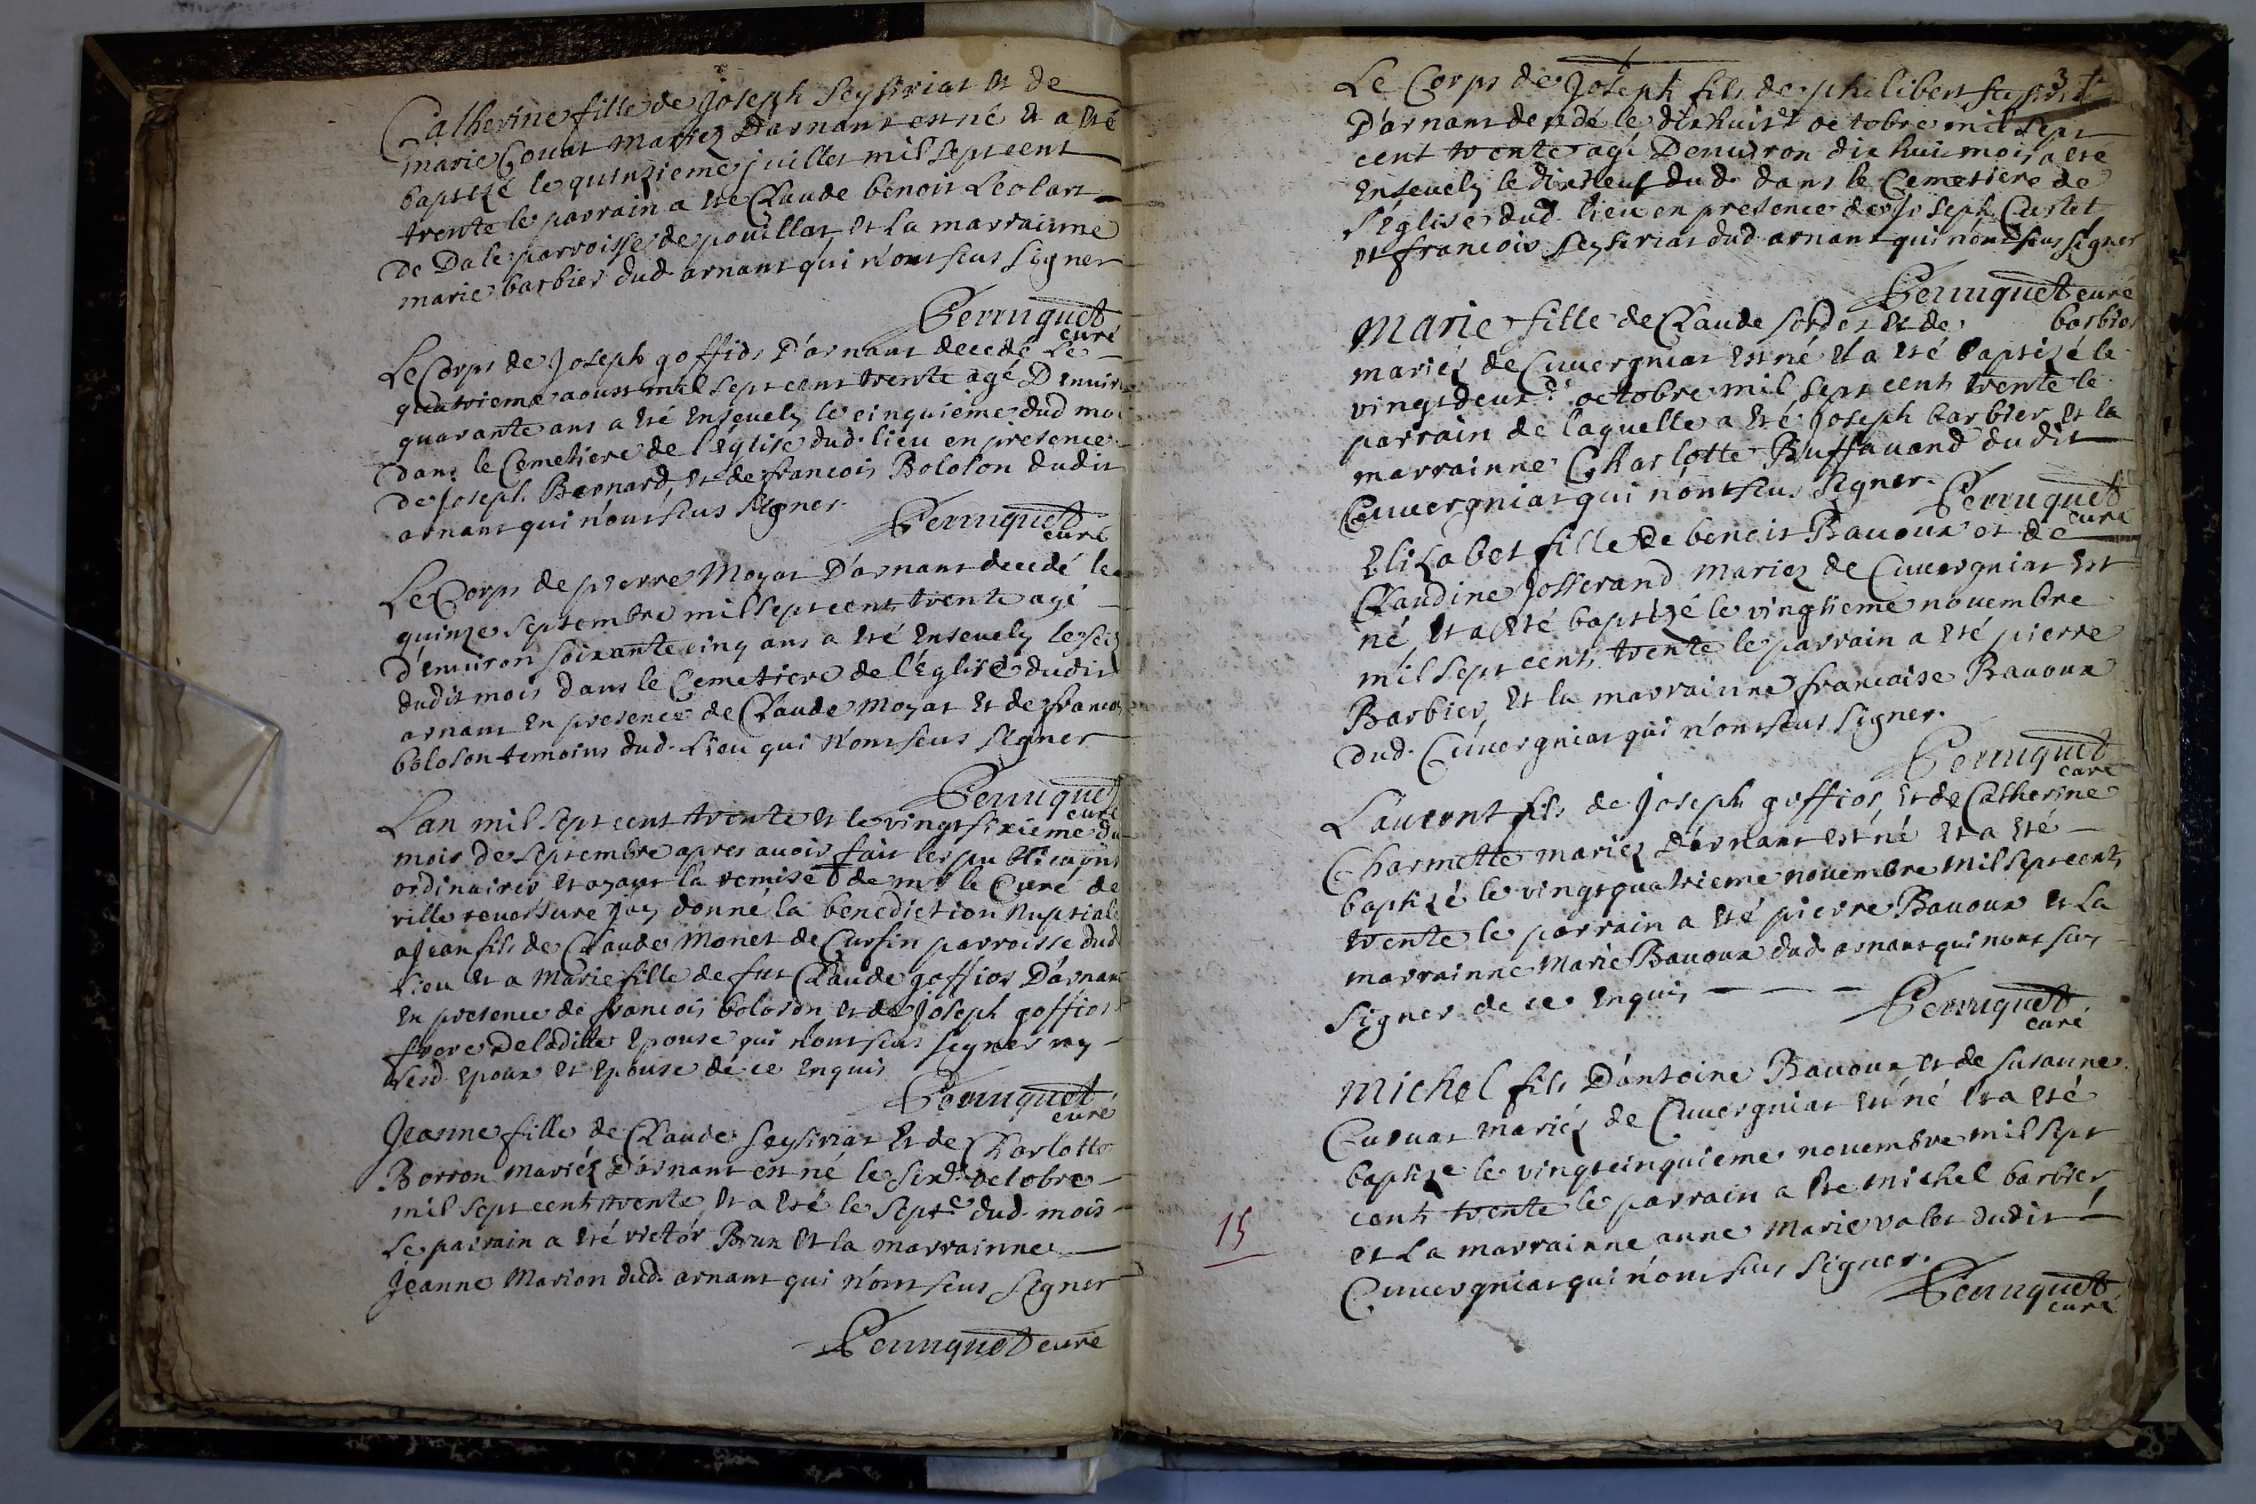 Catherine fille de Joseph Seysiriat et de
marie Couat mariez D'arnant est né et a été
baptizé le quinzieme juillet mil sept cent
trente le parrain a été Claude benoit Leolart
de Dale parroisse de pouillat et La marrainne
marie barbier dud. arnant qui n'ont sçus signer
Perruquet
curé
Le Corps de Joseph goffios D'arnant decedé Le
quatrieme aoust mil sept cent trente agé D'enviro
quarante ans a été Ensevely le cinquieme dud moi
Dans le Cemetiere de l'Église dud. lieu en presence
de Joseph Bernard, et de francois Boloson dudit
arnant qui n'ont sçus signer.
Perruquet
curé
Le Corps de pierre Moyat D'arnant decedé le
quinze septembre mil sept cent trente agé
d'environ soixante cinq ans a été Ensevely le seiz
dudit mois dans le Cemetiere de l'Église dudit
arnant En presence de Claude Moyat et de francois
boloson temoins dud. Lieu qui n'ont sçus signer
Perruquet
curé
L'an mil sept cent trente et le vingt sixieme du
mois de septembre apres avoir fait les publications
ordinaires et ayant la remise de mr. le Curé de
ville reversure j'ay donné la benediction Nuptiale
a jean fils de Claude Monet de Cursin parroisse dud
Lieu et a Marie fille de fut Claude goffios D'arnant
En presence de francois boloson et de Joseph goffios
frere de ladite Epouse qui n'ont sçus signer ny
lesd. Epoux et Epouse de ce Enquis
Perruquet
curé
Jeanne fille de Claude Seysiriat Et de Charlotte
Borron mariéz D'arnant est né le six.e octobre
mil sept cent trente, et a été le sept.e dud. mois
Le parrain a été victor Brun et la marrainne
Jeanne Marion dud. arnant qui n'ont sçus signer
Perruquet curé
3
Le Corps de Joseph fils de philibert
D'arnant decedé le dix huit.e octobre mil sept
cent trente agé D'environ dix huit mois a été
Ensevely le dixneuf dud. dans le Cemetiere de
l'Église dud. lieu en presence de Joseph Curlet
et francois Seysiriat dud. arnant qui n'ont sçus signer
Perruquet curé
Marie fille de Claude sordet et de barbier
mariéz de Cuvergniat est né et a été baptizé le
vingtdeux.e octobre mil sept cent trente le
parrain de laquelle a été Joseph barbier et la
marrainne Charlotte Buffavand dudit
Cuvergniat qui n'ont sçus signer.
Perruquet
curé
Elizabet fille de benoit Bavoux et de
Claudine Josserand mariez de Cuvergniat est
né, et a été baptizé le vingtieme novembre
mil sept cent trente le parrain a été pierre
Barbier, et la marrainne francoise Bavoux
dud. Cuvergniat qui n'ont sçus signer.
Perruquet
curé
Laurent fils de Joseph goffios, et de Catherine
Charmette mariez D'arnant est né et a été
baptizé le vingtquatrieme novembre mil sept cent
trente le parrain a été pierre Bavoux et La
marrainne Marie Bavoux dud. arnant qui n'ont sçus
signer de ce Enquis
Perruquet
curé
Michel fils D'antoine Bavoux et de Susanne
Curvat mariéz de Cuvergniat est né et a été
baptizé le vingtcinquieme novembre mil sept
cent trente le parrain a été michel barbier
et La marrainne anne Marie valet dudit
Cuvergniat qui n'ont sçus signer.
Perruquet
curé
15